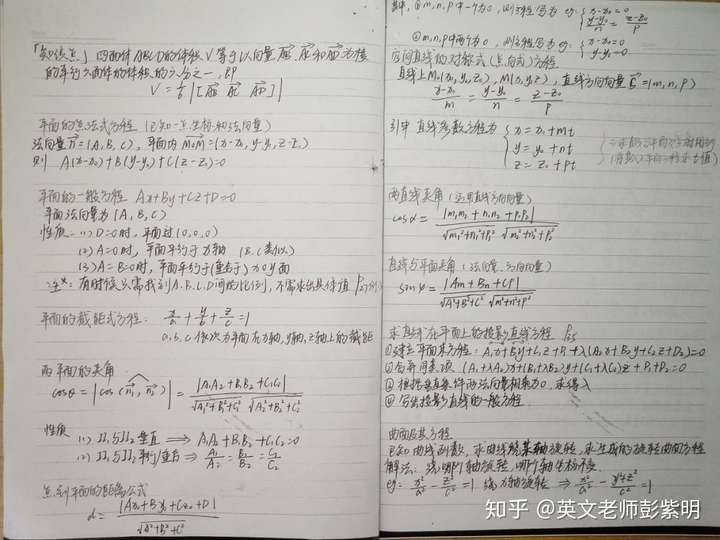 「知识点」四面体ABCD的体积V等于以向量AB, AC和AD为棱
的平行六面体的体积的六分之一, 即
V = 1/6 |[AB AC AD]|
平面的点法式方程 (已知一点坐标和法向量)
法向量n = (A, B, C), 平面内 M₀M = (x-x₀, y-y₀, z-z₀)
则 A(x-x₀)+B(y-y₀)+C(z-z₀)=0
平面的一般方程 Ax+By+Cz+D=0
平面法向量为 (A, B, C)
性质 (1) D=0时, 平面过(0,0,0)
(2) A=0时, 平面平行于x轴 (B, C类似)
(3) A=B=0时, 平面平行于(垂直于)xOy面
注*: 有时候只需找到A.B.C.D间的比例, 不需求出具体值
平面的截距式方程: x/a + y/b + z/c = 1
a, b, c依次为平面在x轴, y轴, z轴上的截距
两平面的夹角
cosθ = |cos(n₁, n₂)| = |A₁A₂+B₁B₂+C₁C₂| / √A₁²+B₁²+C₁² √A₂²+B₂²+C₂²
性质 (1) π₁与π₂垂直 ⟹ A₁A₂+B₁B₂+C₁C₂=0
(2) π₁与π₂平行/重合 ⟹ A₁/A₂ = B₁/B₂ = C₁/C₂
点到平面的距离公式
d = |Ax₀+By₀+Cz₀+D| / √A²+B²+C²
其中, ①m,n,p中一个为0, 则方程写为 eg: { x-x₀=0
(y-y₀)/n = (z-z₀)/p
②m,n,p中两个为0, 则方程写为 eg: { x-x₀=0
y-y₀=0
空间直线的对称式(点向式)方程
直线上M₀(x₀,y₀,z₀), M(x,y,z), 直线方向向量 = (m, n, p)
(x-x₀)/m = (y-y₀)/n = (z-z₀)/p
引申 直线参数方程为 { x = x₀+mt
y = y₀+nt
z = z₀+pt
两直线夹角 (运用直线方向向量)
cosα = |m₁m₂ + n₁n₂ + p₁p₂| / √m₁²+n₁²+p₁² √m₂²+n₂²+p₂²
直线与平面夹角 (法向量、方向向量)
sinφ = |Am+Bn+Cp| / √A²+B²+C² √m²+n²+p²
求直线在平面上的投影直线方程
①建立平面束方程: A₁x+B₁y+C₁z+D₁+λ(A₂x+B₂y+C₂z+D₂)=0
②合并同类项 (A₁+λA₂)x+(B₁+λB₂)y+(C₁+λC₂)z+D₁+D₂=0
③根据垂直条件两法向量相乘为0, 求得λ
④写出投影直线的一般方程
曲面及其方程
已知曲线函数, 求曲线绕某轴旋转, 求生成的旋转曲面方程
解法: 绕哪个轴旋转, 哪个轴坐标不换
eg: x²/a² - z²/c² = 1 绕x轴旋转 ⟹ x²/a² - (y²+z²)/c² = 1
知乎 @英文老师彭紫明